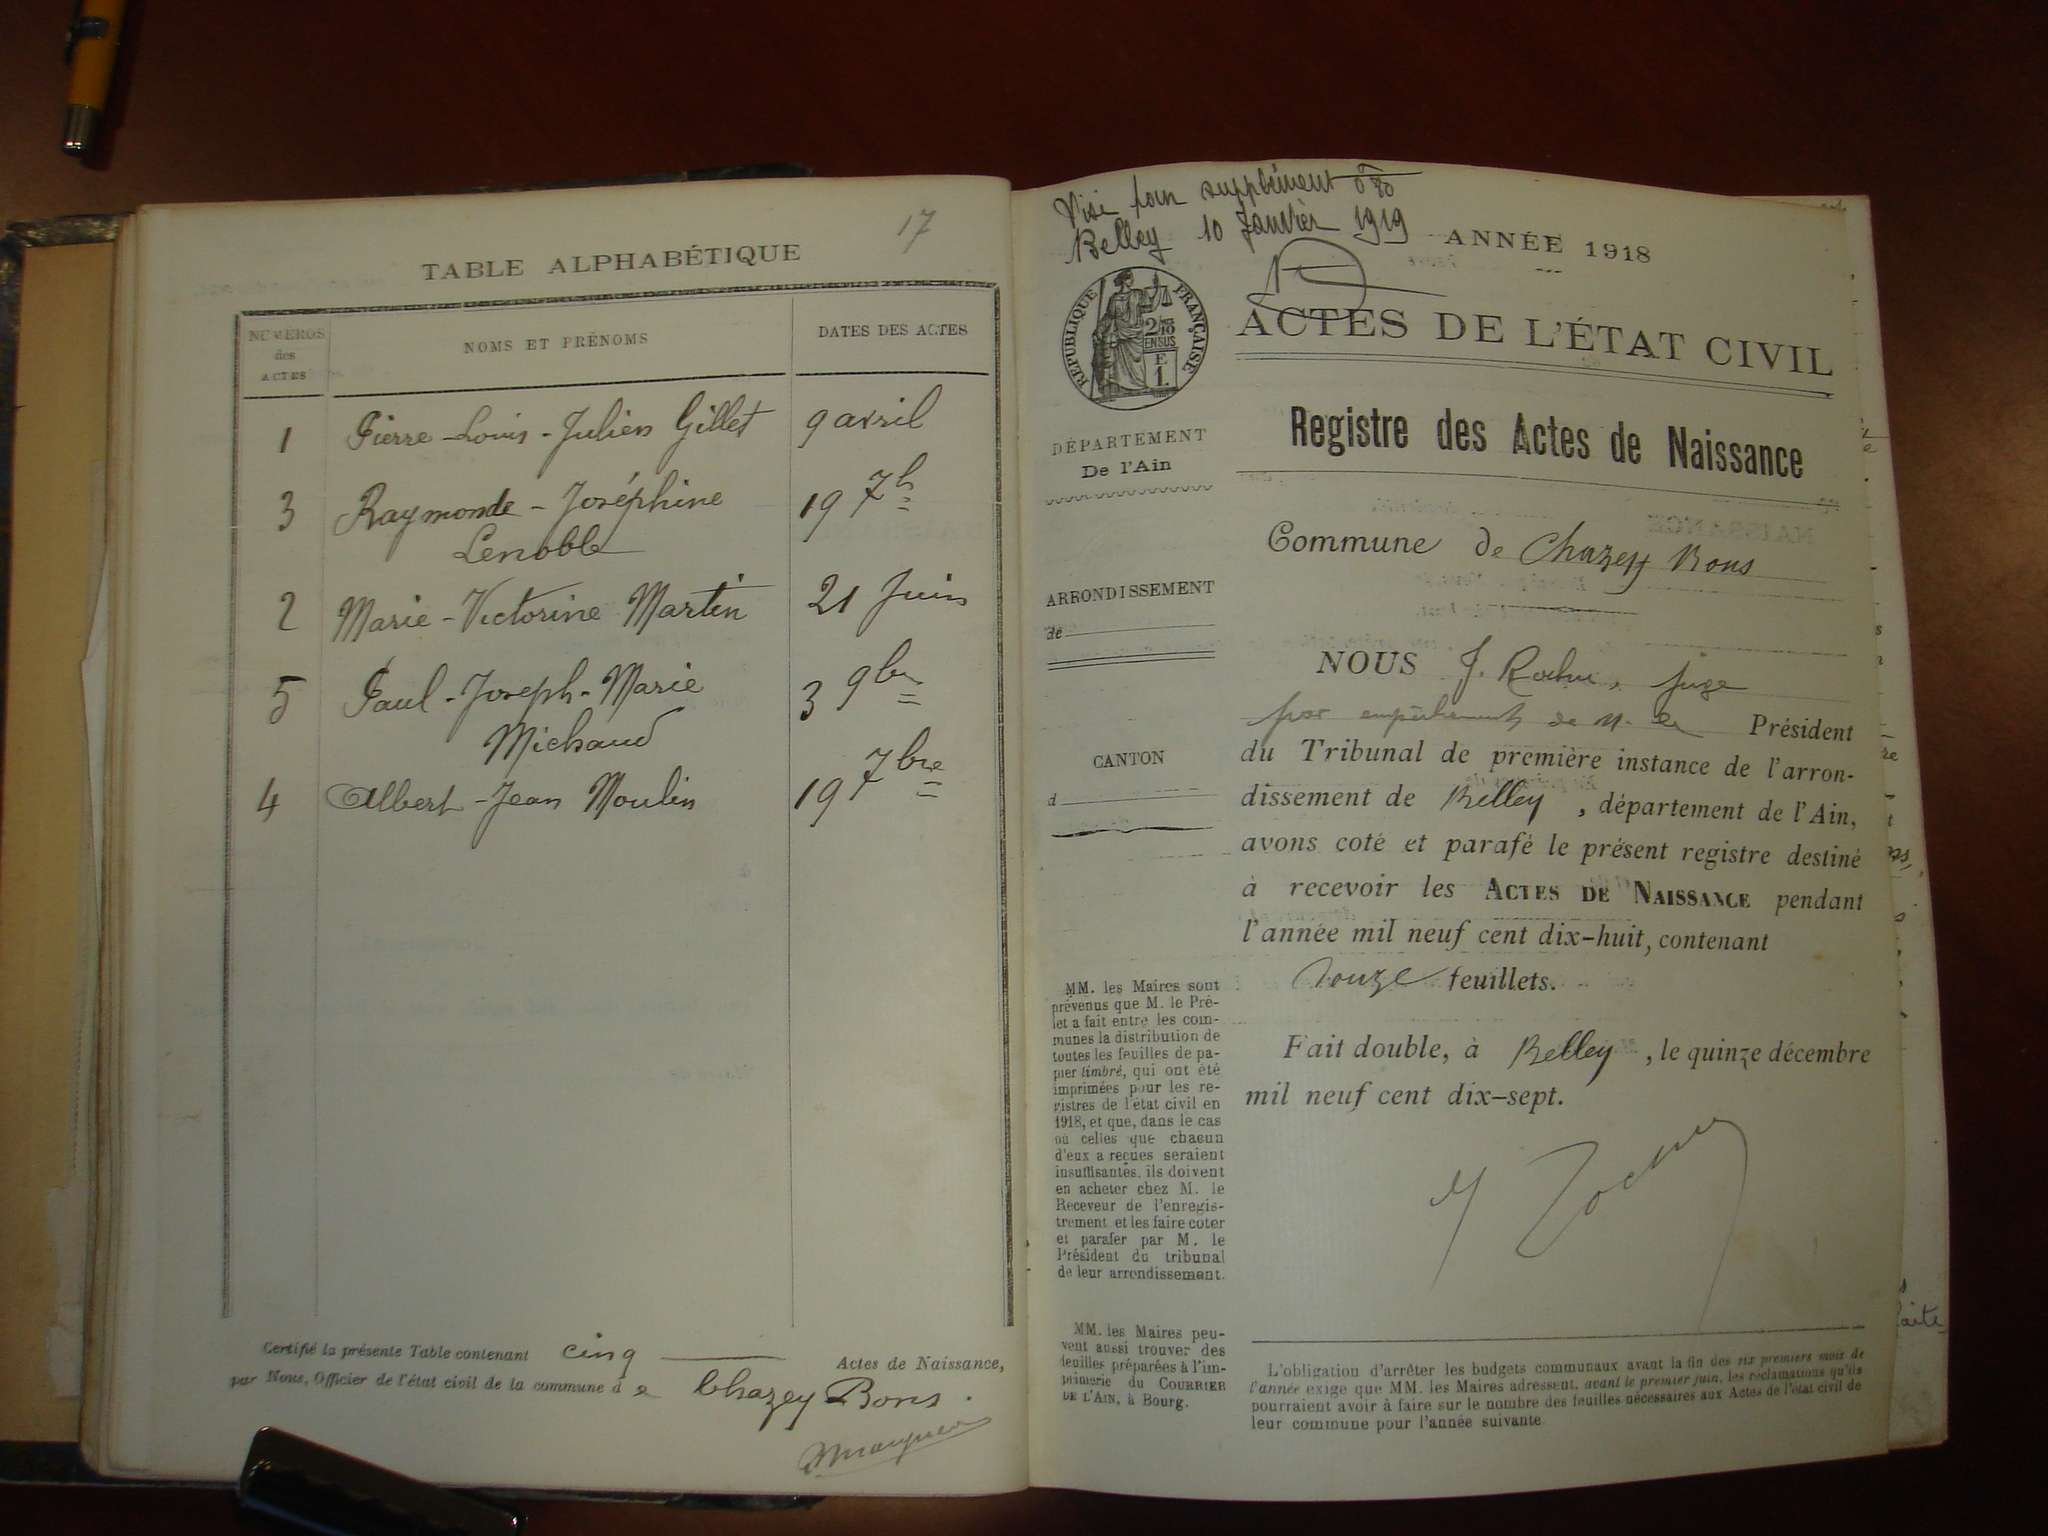 17
TABLE ALPHABÉTIQUE
NUMÉROS
des
ACTES
NOMS ET PRÉNOMS
DATES DES ACTES
1 Pierre-Louis-Julien Gillet 9 avril
3 Raymonde-Joséphine 19 7b
Lenoble
2 Marie-Victorine Martin 21 Juin
5 Paul-Joseph-Marie 3 9bre
Michaud
4 Albert-Jean Moulin 19 7bre
Certifié la présente Table contenant cinq Actes de Naissance,
par Nous, Officier de l'état civil de la commune de Chazey Bons.
Visé pour supplément
Belley 10 Janvier 1919
ANNÉE 1918
RÉPUBLIQUE FRANÇAISE
ACTES DE L'ÉTAT CIVIL
Registre des Actes de Naissance
DÉPARTEMENT
De l'Ain
Commune de Chazey Bons
ARRONDISSEMENT
de
CANTON
d
NOUS J. Rochu, juge
par empêchement de M. le Président
du Tribunal de première instance de l'arron-
dissement de Belley, département de l'Ain,
avons coté et parafé le présent registre destiné
à recevoir les ACTES DE NAISSANCE pendant
l'année mil neuf cent dix-huit, contenant
douze feuillets.
Fait double, à Belley, le quinze décembre
mil neuf cent dix-sept.
MM. les Maires sont
prévenus que M. le Pré-
fet a fait entre les com-
munes la distribution de
toutes les feuilles de pa-
pier timbré, qui ont été
imprimées pour les re-
gistres de l'état civil en
1918, et que, dans le cas
où celles que chacun
d'eux a reçues seraient
insuffisantes, ils doivent
en acheter chez M. le
Receveur de l'enregis-
trement et les faire coter
et parafer par M. le
Président du tribunal
de leur arrondissement.
MM. les Maires peu-
vent aussi trouver des
feuilles préparées à l'im-
primerie du COURRIER
DE L'AIN, à Bourg.
L'obligation d'arrêter les budgets communaux avant la fin des six premiers mois de
l'année exige que MM. les Maires adressent, avant le premier juin, les réclamations qu'ils
pourraient avoir à faire sur le nombre des feuilles nécessaires aux Actes de l'état civil de
leur commune pour l'année suivante.